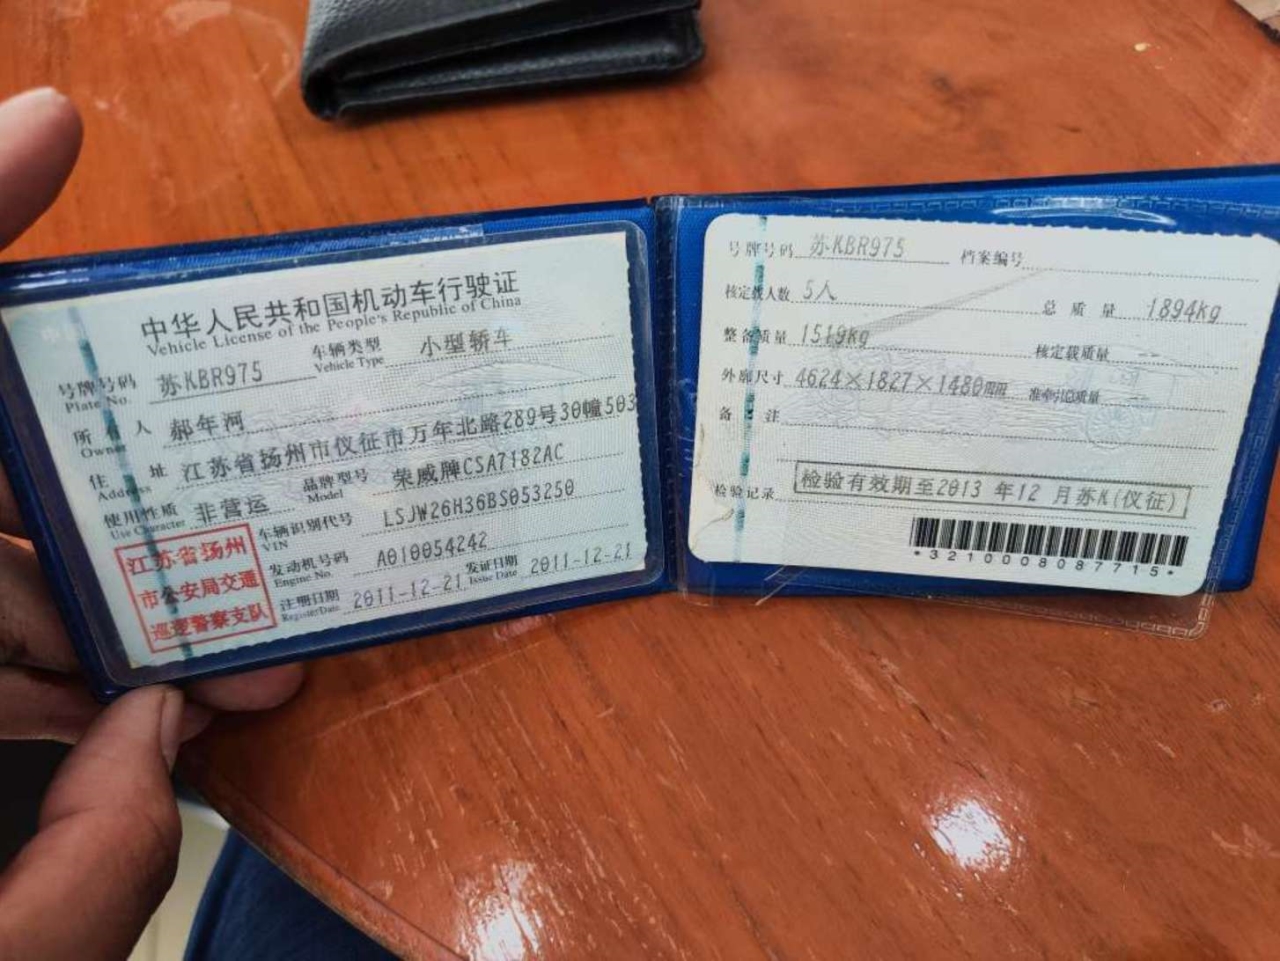 中华人民共和国机动车行驶证
Vehicle License of the People's Republic of China
号牌号码 苏KBR975 车辆类型 小型轿车
Plate No. Vehicle Type
所有人 郝年河
Owner
住址 江苏省扬州市仪征市万年北路289号30幢503
Address
使用性质 非营运 品牌型号 荣威牌CSA7182AC
Use Character Model
车辆识别代号 LSJW26H36BS053250
VIN
发动机号码 A010054242
Engine No.
注册日期 2011-12-21 发证日期 2011-12-21
Register Date Issue Date
江苏省扬州
市公安局交通
巡逻警察支队
号牌号码 苏KBR975 档案编号
核定载人数 5人 总质量 1894kg
整备质量 1519kg 核定载质量 --
外廓尺寸 4624×1827×1480 准牵引总质量 --
备注
检验记录 检验有效期至2013 年12 月苏K(仪征)
*3210008087715*